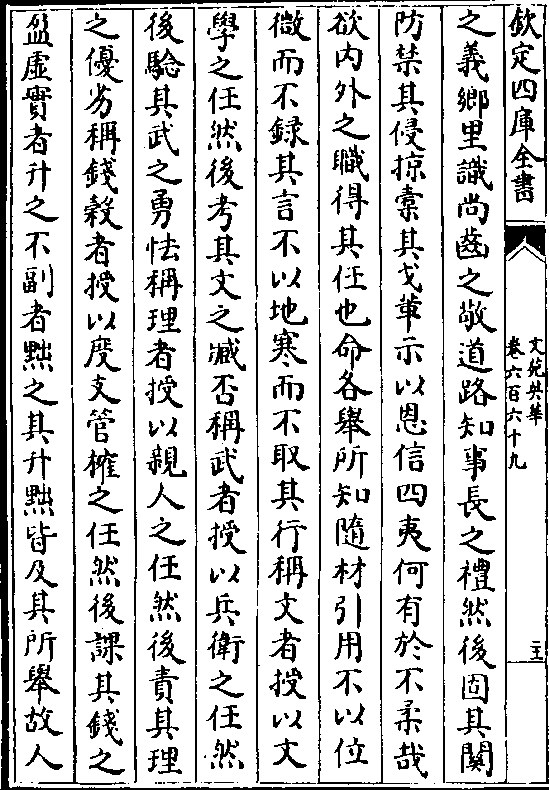 欽定四庫全書
文苑英華
卷六百六十九
之義鄉里識尚齒之敬道路知事長之禮然後固其關
防禁其侵掠櫜其戈革示以恩信四夷何有於不柔哉
欲内外之職得其任也命各舉所知隨材引用不以位
微而不録其言不以地寒而不取其行稱文者授以文
學之任然後考其文之臧否稱武者授以兵衛之任然
後驗其武之勇怯稱理者授以親人之任然後責其理
之優劣稱錢穀者授以度支管榷之任然後課其錢之
盈虚實者升之不副者黜之其升黜皆及其所舉故人